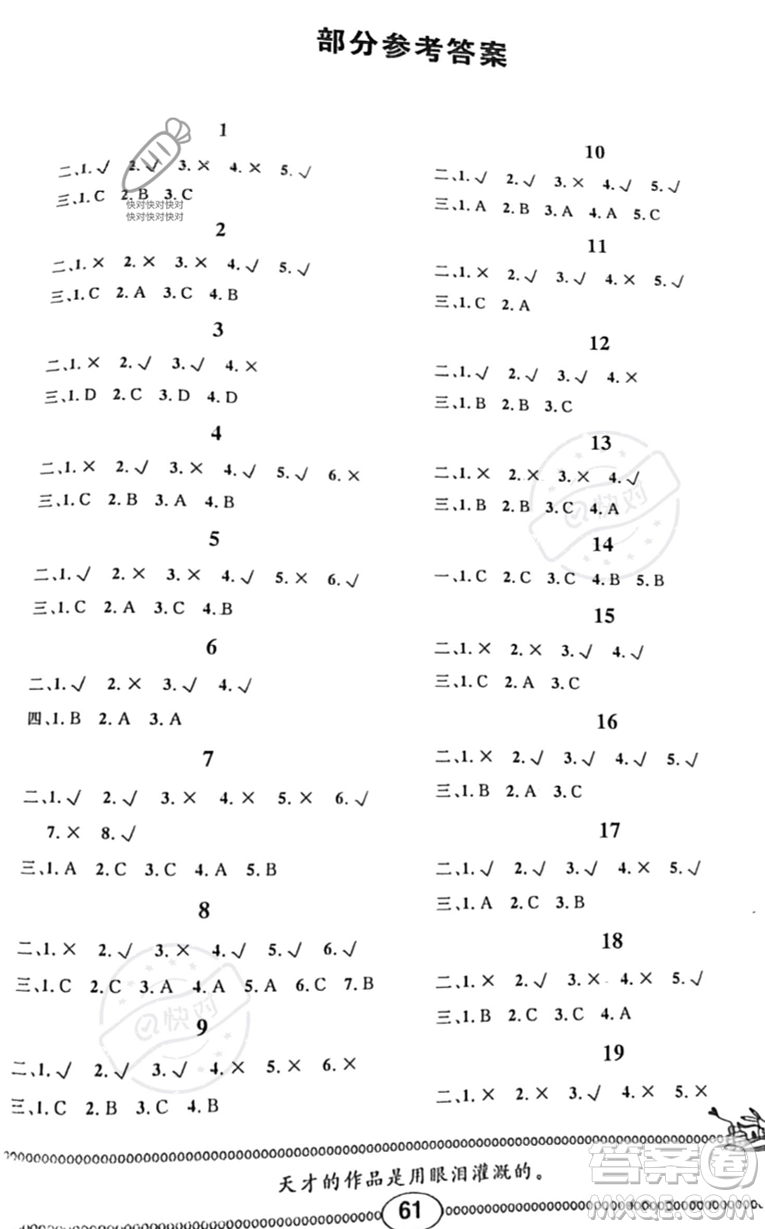 部分参考答案
1
二、1.√ 2.√ 3.× 4.× 5.√
三、1.C 2.B 3.C
快对快对快对
快对快对快对
2
二、1.× 2.× 3.× 4.√ 5.√
三、1.C 2.A 3.C 4.B
3
二、1.× 2.√ 3.√ 4.×
三、1.D 2.C 3.D 4.D
4
二、1.× 2.√ 3.× 4.√ 5.√ 6.×
三、1.C 2.B 3.A 4.B
5
二、1.√ 2.× 3.× 4.√ 5.× 6.√
三、1.C 2.A 3.C 4.B
6
二、1.√ 2.× 3.√ 4.√
四、1.B 2.A 3.A
7
二、1.√ 2.√ 3.× 4.× 5.× 6.√
7.× 8.√
三、1.A 2.C 3.C 4.A 5.B
8
二、1.× 2.√ 3.× 4.√ 5.√ 6.√
三、1.C 2.C 3.A 4.A 5.C 6.C 7.B
快对
9
二、1.√ 2.√ 3.√ 4.× 5.× 6.×
三、1.C 2.B 3.A 4.B 5.C
10
二、1.√ 2.√ 3.× 4.√ 5.√
三、1.A 2.B 3.A 4.A 5.C
11
二、1.√ 2.√ 3.√ 4.× 5.√
三、1.C 2.A
12
二、1.√ 2.√ 3.√ 4.×
三、1.B 2.B 3.C
13
二、1.× 2.× 3.× 4.√
三、1.B 2.B 3.C 4.A
快对
14
一、1.C 2.C 3.C 4.B 5.B
15
二、1.× 2.× 3.√ 4.√
三、1.C 2.A 3.C
16
二、1.× 2.√ 3.√ 4.√ 5.√
三、1.B 2.A 3.C
17
二、1.√ 2.√ 3.√ 4.× 5.√
三、1.A 2.C 3.B
18
二、1.× 2.√ 3.× 4.× 5.√
三、1.B 2.C 3.C 4.A
19
二、1.× 2.× 3.√ 4.× 5.×
天才的作品是用眼泪灌溉的。
61
答案圈
MXQE.COM